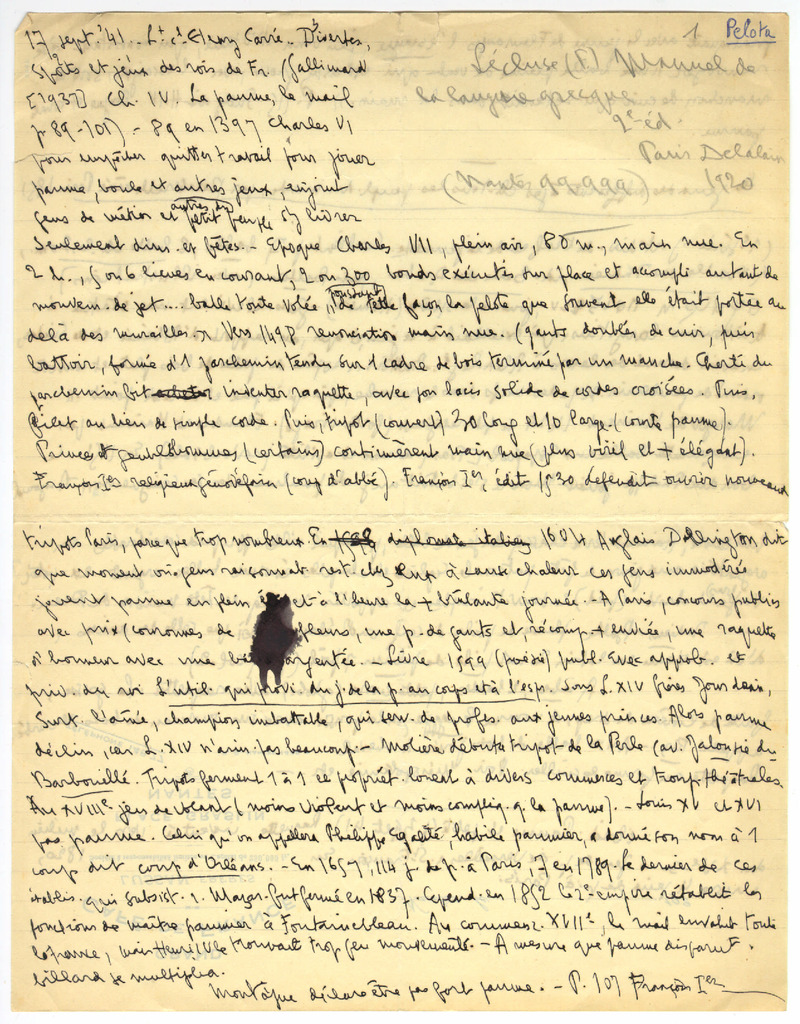 1 Pelota
17 sept. '41. - Lt. cl Henry Carré. - Divertes,
Sports et jeux des rois de Fr. (Gallimard
[1937] Ch. IV. La paume, le mail
p 89-101) - 89 en 1397 Charles VI
pour empêcher quitter travail pour jouer
paume, boule et autres jeux, enjoint
gens de métier et autres du petit peuple s'y livrer
Lécluse (F) Manuel de
la langue grecque
2e éd.
Paris Delalain
(Nantes 99.999) 1920
seulement dim. et fêtes. - Epoque Charles VII, plein air, 80 m., main nue. En
2 h., 5 ou 6 lieues en courant, 2 ou 300 bonds exécutés sur place et accompli autant de
mouvem. de jet.... balle toute volée "de telle façon la pelote que souvent elle était portée au
delà des murailles. Vers 1498 renonciation main nue. (gants doublés de cuir, puis
battoir, formé d'1 parchemin tendu sur 1 cadre de bois terminé par un manche. Cherté du
parchemin fit inventer raquette, avec son lacis solide de cordes croisées. Puis,
filet au lieu de simple corde. Puis, tripot (couvert) 30 long et 10 large. (courte paume).
Princes et gentilshommes (certains) continuèrent main nue (plus viril et + élégant).
François Ier religieux génovéfain (coup d'abbé). François Ier, édit 1530 défendit ouvrir nouveaux
tripots Paris, parce que trop nombreux. En 1598 diplomate italien 1604 Anglais Dallington dit
que moment où gens raisonnab. rest. chez eux à cause chaleur ces gens immodérés
jouent paume en plein et à l'heure la + brûlante journée. - A Paris, concours publics
avec prix (couronnes de fleurs, une p. de gants et, récomp. + enviée, une raquette
d'honneur avec une argentée. - Livre 1599 (poésie) publ. avec approb. et
priv. du roi L'util. qui provi. du j. de la p. au corps et à l'esp. Sous L. XIV frères Jourdain,
surt. l'aîné, champion imbattable, qui serv. de profes. aux jeunes princes. Alors paume
déclin, car L. XIV n'aim. pas beaucoup. - Molière débuta tripot de la Perle (av. Jalousie du
Barbouillé. Tripots ferment 1 à 1 et propriét. louent à divers commerces et troup. théâtrales.
Au XVIIIe jeu de volant (moins violent et moins compliq. q. la paume). - Louis XV et XVI
pas paume. Celui qu'on appellera Philippe Egalité, habile paumier, a donné son nom à 1
coup dit coup d'Orléans. - En 1657, 114 j. de p. à Paris, 7 en 1789. Le dernier de ces
établis. qui subsist. r. Mazar. fut fermé en 1837. Cepend. en 1852 le 2e empire rétablit les
fonctions de maître paumier à Fontainebleau. Au commenc. XVIIe, le mail envahit toute
la France, mais Henri IV le trouvait trop peu mouvementé. - A mesure que paume disparut,
billard se multiplia.
Montaigne déclare être pas fort paume. - P. 101 François Ier